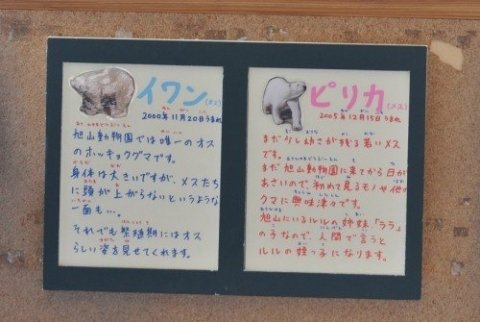 イワン(オス)
2000年11月20日うまれ
旭山動物園では唯一のオス
のホッキョクグマです。
身体は大きいですが、メスたち
に頭が上がらないというような
一面も…。
それでも繁殖期にはオス
らしい姿を見せてくれます。
ピリカ(メス)
2005年12月15日うまれ
まだ少し幼さが残る若いメス
です。
まだ旭山動物園に来てから日が
あさいので、初めて見るモノや他の
クマに興味津々です。
旭山にいるルルの姉妹「ララ」
の子なので、人間で言うと
ルルの姪っ子になります。